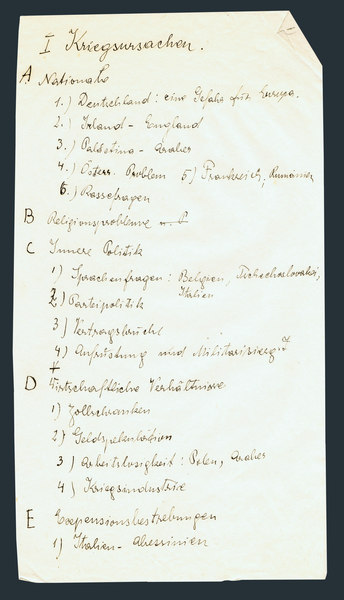 I Kriegsursachen.
A Nationale
1.) Deutschland: eine Gefahr für Europa.
2.) Irland - England
3.) Palästina - Araber
4.) Österr. Problem 5) Frankreich, Rumänien
6.) Rassefragen
B Religionsprobleme
C Innere Politik
1) Sprachenfragen: Belgien, Tschechoslovakei,
Italien
2) Parteipolitik
3) Vertragsbruch
4) Aufrüstung und Militarisierg
D Wirtschaftliche Verhältnisse
1) Zollschranken
2) Geldspekulation
3) Arbeitslosigkeit: Polen, Araber
4) Kriegsindustrie
E Expensionsbestrebungen
1) Italien - Abessinien